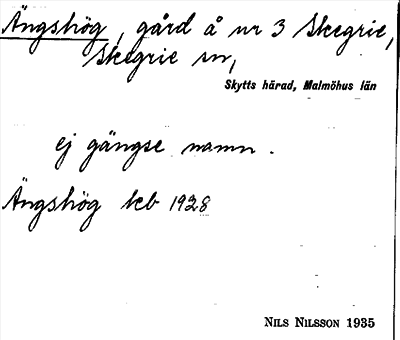 Ängshög, gård å nr 3 Skegrie,
Skegrie sn,
Skytts härad, Malmöhus län
ej gängse namn.
Ängshög kb 1928
NILS NILSSON 1935